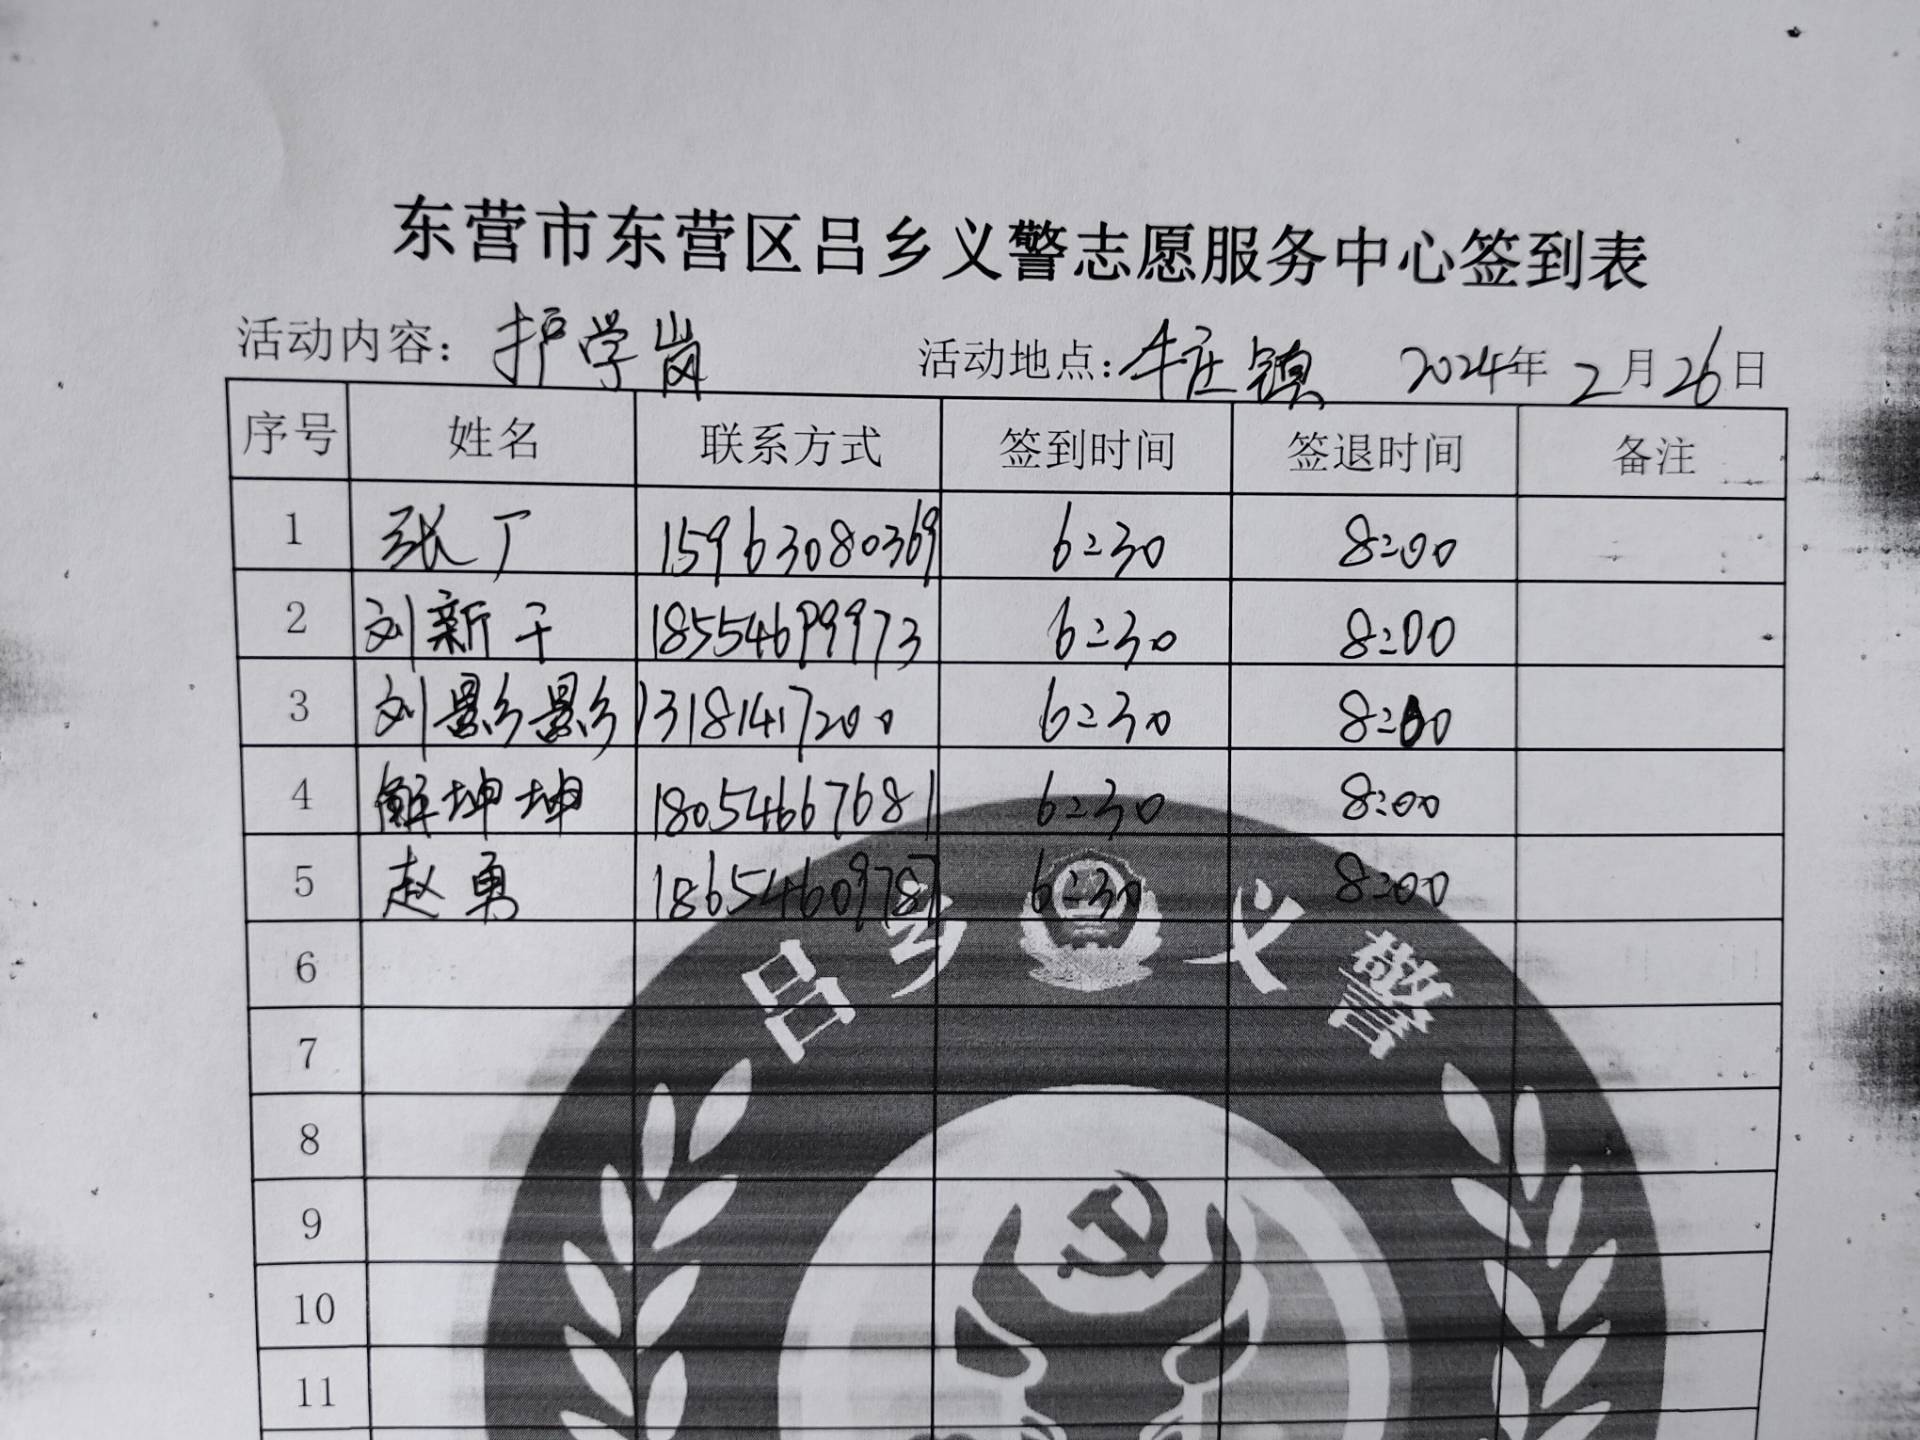 东营市东营区吕乡义警志愿服务中心签到表
活动内容：护学岗 活动地点：牛庄镇 2024年2月26日
序号 姓名 联系方式 签到时间 签退时间 备注
1 张丁 15963080369 6:30 8:00
2 刘新干 18554699973 6:30 8:00
3 刘影影 13181417200 6:30 8:00
4 解坤坤 18054667681 6:30 8:00
5 赵勇 18654609787 6:30 8:00
吕乡义警
6
7
8
9
10
11